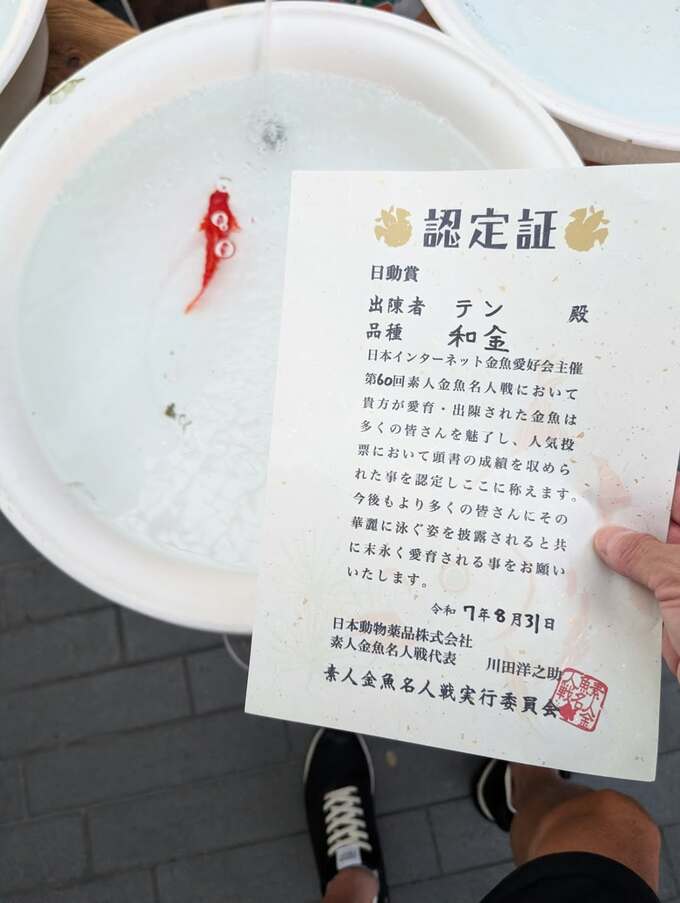 認定証
日動賞
出陳者 テン 殿
品種 和金
日本インターネット金魚愛好会主催
第60回素人金魚名人戦において
貴方が愛育・出陳された金魚は
多くの皆さんを魅了し、人気投
票において頭書の成績を収めら
れた事を認定しここに称えます。
今後もより多くの皆さんにその
華麗に泳ぐ姿を披露されると共
に末永く愛育される事をお願い
いたします。
令和 7年8月31日
日本動物薬品株式会社
素人金魚名人戦代表 川田洋之助
素人金魚名人戦実行委員会
素人金
魚名
人戦